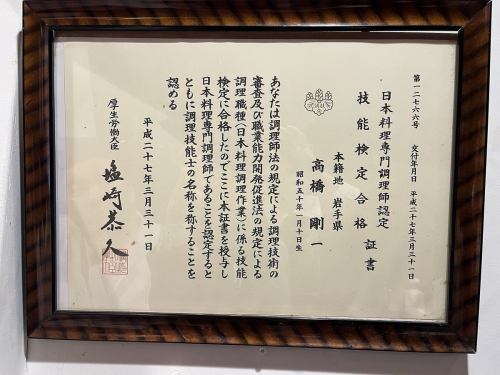 第一二七六六号 交付年月日 平成二十七年三月三十一日
日本料理専門調理師認定
技能検定合格
証書
本籍地 岩手県
高橋剛一
昭和五十年一月十日生
あなたは調理師法の規定による調理技術の
審査及び職業能力開発促進法の規定による
調理職種（日本料理調理作業）に係る技能
検定に合格したのでここに本証書を授与し
日本料理専門調理師であることを認定すると
ともに調理技能士の名称を称することを
認める
平成二十七年三月三十一日
厚生労働大臣 塩崎恭久